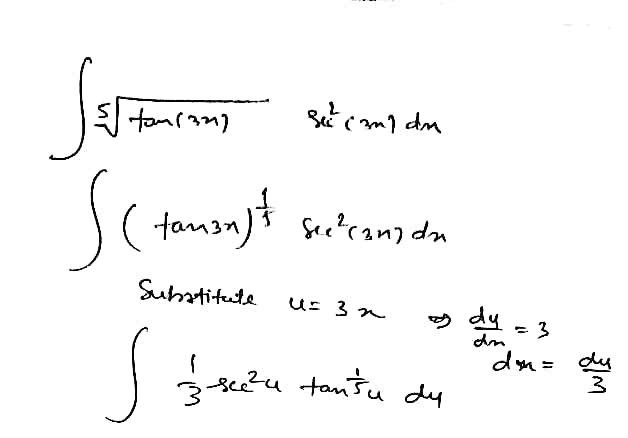 ∫ ⁵√tan(3x) sec²(3x) dx
∫ (tan3x)^(1/5) sec²(3x) dx
Substitute u = 3x ⇒ du/dx = 3
dx = du/3
∫ 1/3 sec²u tan^(1/5)u du